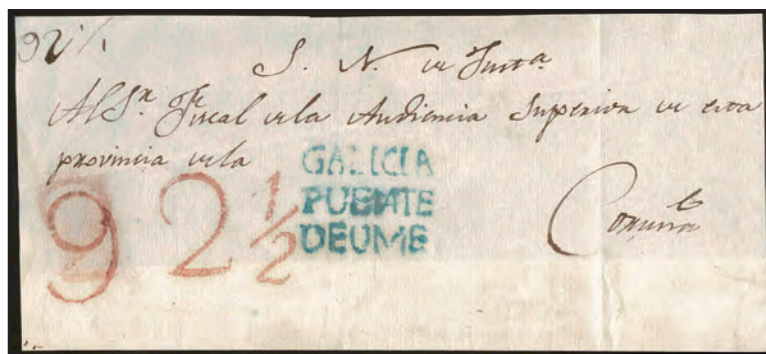 92½
S. N. de Justa
Al Sr. Fiscal de la Audiencia Superior de esta
provincia de la
GALICIA
PUENTE
DEUME
92½
Coruña